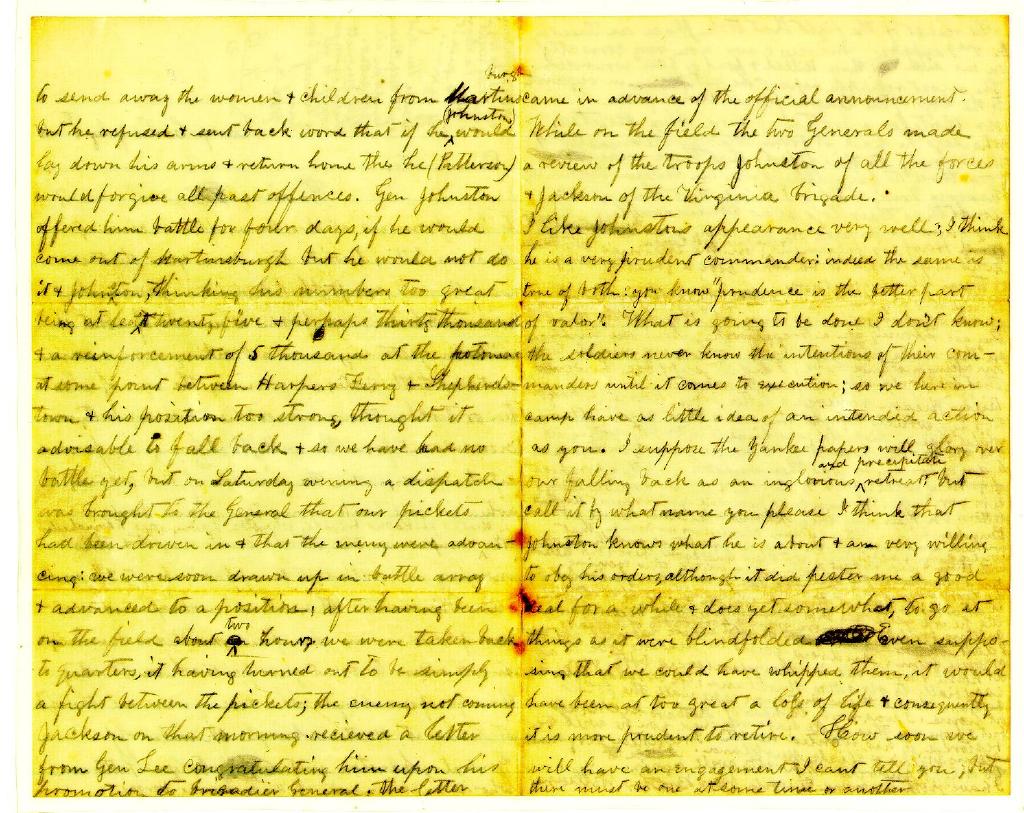 to send away the women & children from Martinsburgh
but he refused & sent back word that if he (Johnston) would
lay down his arms & return home the he (Patterson)
would forgive all past offences. Gen Johnston
offered him battle for four days, if he would
come out of Martinsburgh but he would not do
it & Johnston, thinking his numbers too great
being at least twenty five & perhaps thirty thousand
& a reinforcement of 5 thousand at the potomac
at some point between Harpers Ferry & Shepherds-
town & his position too strong, thought it
advisable to fall back & so we have had no
battle yet, but on Saturday evening a dispatch
was brought to the General that our pickets
had been driven in & that the enemy were advan-
cing: we were soon drawn up in battle array
& advanced to a position; after having been
on the field about two hours we were taken back
to quarters, it having turned out to be simply
a fight between the pickets; the enemy not coming
Jackson on that morning recieved a letter
from Gen Lee congratulating him upon his
promotion to brigadier General. the letter
came in advance of the official announcement.
While on the field the two Generals made
a review of the troops Johnston of all the forces
& Jackson of the Virginia brigade.
I like Johnston's appearance very well; I think
he is a very prudent commander: indeed the same is
true of both: you know "prudence is the better part
of valor". What is going to be done I don't know;
the soldiers never know the intentions of their com-
manders until it comes to execution; so we here in
camp have as little idea of an intended action
as you. I suppose the Yankee papers will glory over
our falling back as an inglorious and precipitate retreat but
call it by what name you please I think that
Johnston knows what he is about & am very willing
to obey his orders, although it did pester me a good
deal for a while & does yet somewhat, to go at
things as it were blindfolded Even suppo-
sing that we could have whipped them, it would
have been at too great a loss of life & consequently
it is more prudent to retire. How soon we
will have an engagement I cant tell you, but
there must be one at some time or another